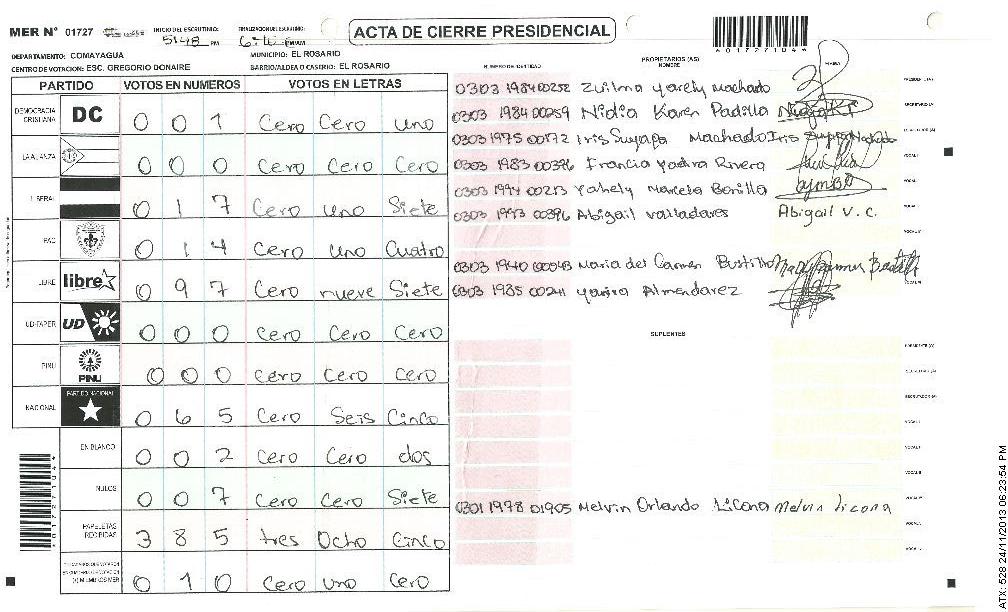 MER N° 01727
INICIO DEL ESCRUTINIO: 5:48 PM
ACTA DE CIERRE PRESIDENCIAL
4017271044
DEPARTAMENTO: COMAYAGUA
MUNICIPIO: EL ROSARIO
CENTRO DE VOTACION: ESC. GREGORIO DONAIRE
BARRIO/ALDEA O CASERIO: EL ROSARIO
PARTIDO VOTOS EN NUMEROS VOTOS EN LETRAS
NUMERO DE IDENTIDAD PROPIETARIOS (AS) NOMBRE FIRMA
DEMOCRACIA CRISTIANA DC 0 0 1 Cero Cero Uno
LA ALIANZA 0 0 0 Cero Cero Cero
LIBERAL 0 1 7 Cero Uno Siete
PAC 0 1 4 Cero Uno Cuatro
LIBRE libre 0 9 7 Cero nueve Siete
UD-FAPER UD 0 0 0 Cero Cero Cero
PINU PINU 0 0 0 Cero Cero Cero
NACIONAL PARTIDO NACIONAL 0 6 5 Cero Seis Cinco
EN BLANCO 0 0 2 Cero Cero dos
NULOS 0 0 7 Cero Cero Siete
PAPELETAS RECIBIDAS 3 8 5 tres Ocho Cinco
(*) MIEMBROS MER 0 1 0 Cero uno Cero
0303 1984 00252 Zuilma Yarely Machado
0303 1984 00259 Nidia Karen Padilla
0303 1975 00172 Iris Suyapa Machado Iris Suyapa Machado
0303 1983 00396 Francia Yadira Rivera
0303 1994 00213 Yahely Marcela Bonilla
0303 1993 00396 Abigail Valladares Abigail V. C.
0303 1940 00043 Maria del Carmen Bustillo
0303 1985 00241 Yarixa Almendarez
SUPLENTES
PRESIDENTE (A)
SECRETARIO (A)
ESCRUTADOR (A)
VOCAL I
VOCAL II
0301 1978 01905 Melvin Orlando Licona Melvin Licona
ATX: 528 24/11/2013 06:23:54 PM